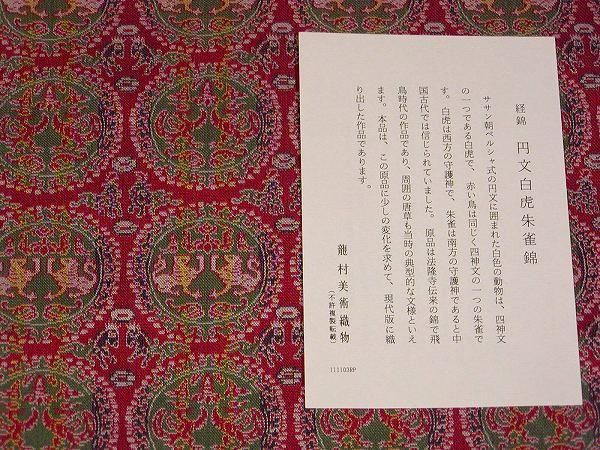 経錦 円文白虎朱雀錦
ササン朝ペルシャ式の円文に囲まれた白色の動物は、四神文
の一つである白虎で、赤い鳥は同じく四神文の一つの朱雀で
す。白虎は西方の守護神で、朱雀は南方の守護神であると中
国古代では信じられていました。原品は法隆寺伝来の錦で飛
鳥時代の作品であり、周囲の唐草も当時の典型的な文様といえ
ます。本品は、この原品に少しの変化を求めて、現代版に織
り出した作品であります。
龍村美術織物
(不許複製転載)
111103RP